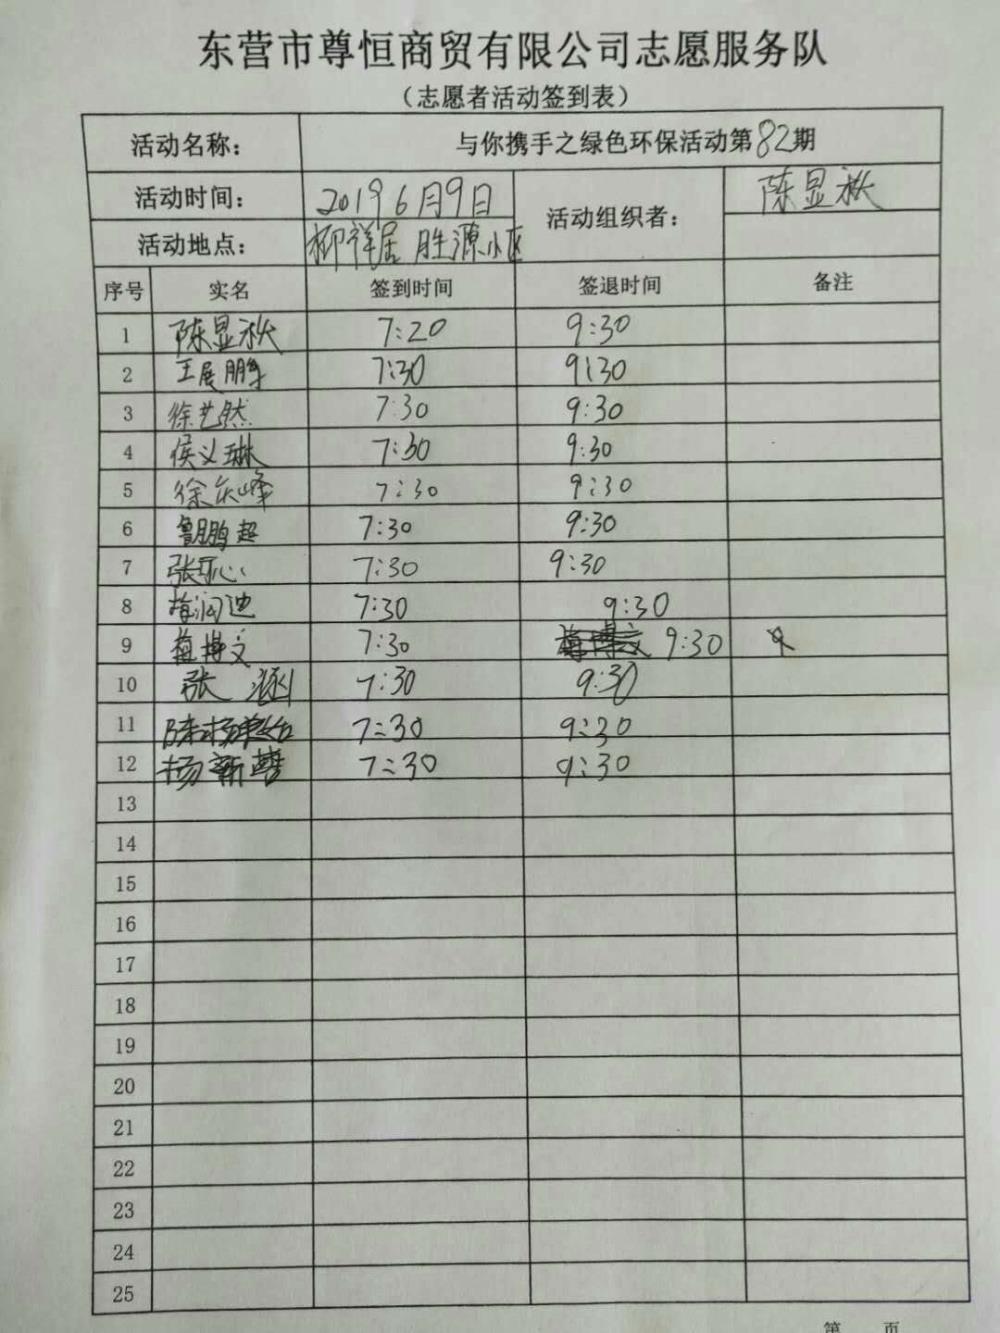 东营市尊恒商贸有限公司志愿服务队
（志愿者活动签到表）
活动名称： 与你携手之绿色环保活动第82期
活动时间： 2019 6月9日 活动组织者： 陈显秋
活动地点： 柳祥居 胜源小区
序号 实名 签到时间 签退时间 备注
1 陈显秋 7:20 9:30
2 王展鹏 7:30 9:30
3 徐艺然 7:30 9:30
4 侯义琳 7:30 9:30
5 徐庆峰 7:30 9:30
6 鲁鹏超 7:30 9:30
7 张 心 7:30 9:30
8 润迪 7:30 9:30
9 博文 7:30 9:30
10 张涵 7:30 9:30
11 陈杨 7:30 9:30
12 杨新 7:30 9:30
13
14
15
16
17
18
19
20
21
22
23
24
25
第 页